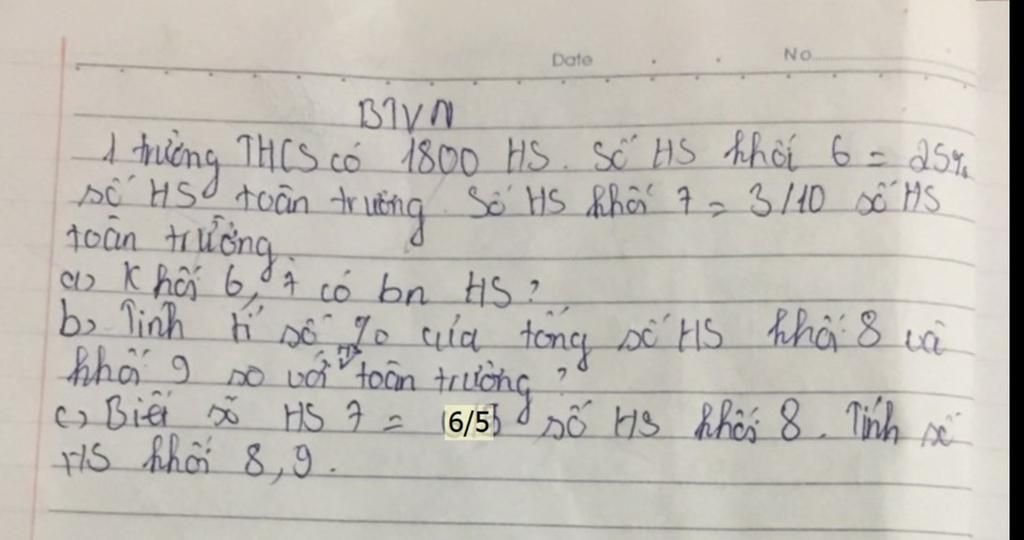 Date No
BTVN
1 trường THCS có 1800 HS. Số HS khối 6 = 25%
số HS toàn trường. Số HS khối 7 = 3/10 số HS
toàn trường
a) Khối 6, 7 có bn HS?
b) Tính tỉ số % của tổng số HS khối 8 và
khối 9 so với toàn trường?
c) Biết số HS 7 = 6/5 số HS khối 8. Tính số
HS khối 8, 9.